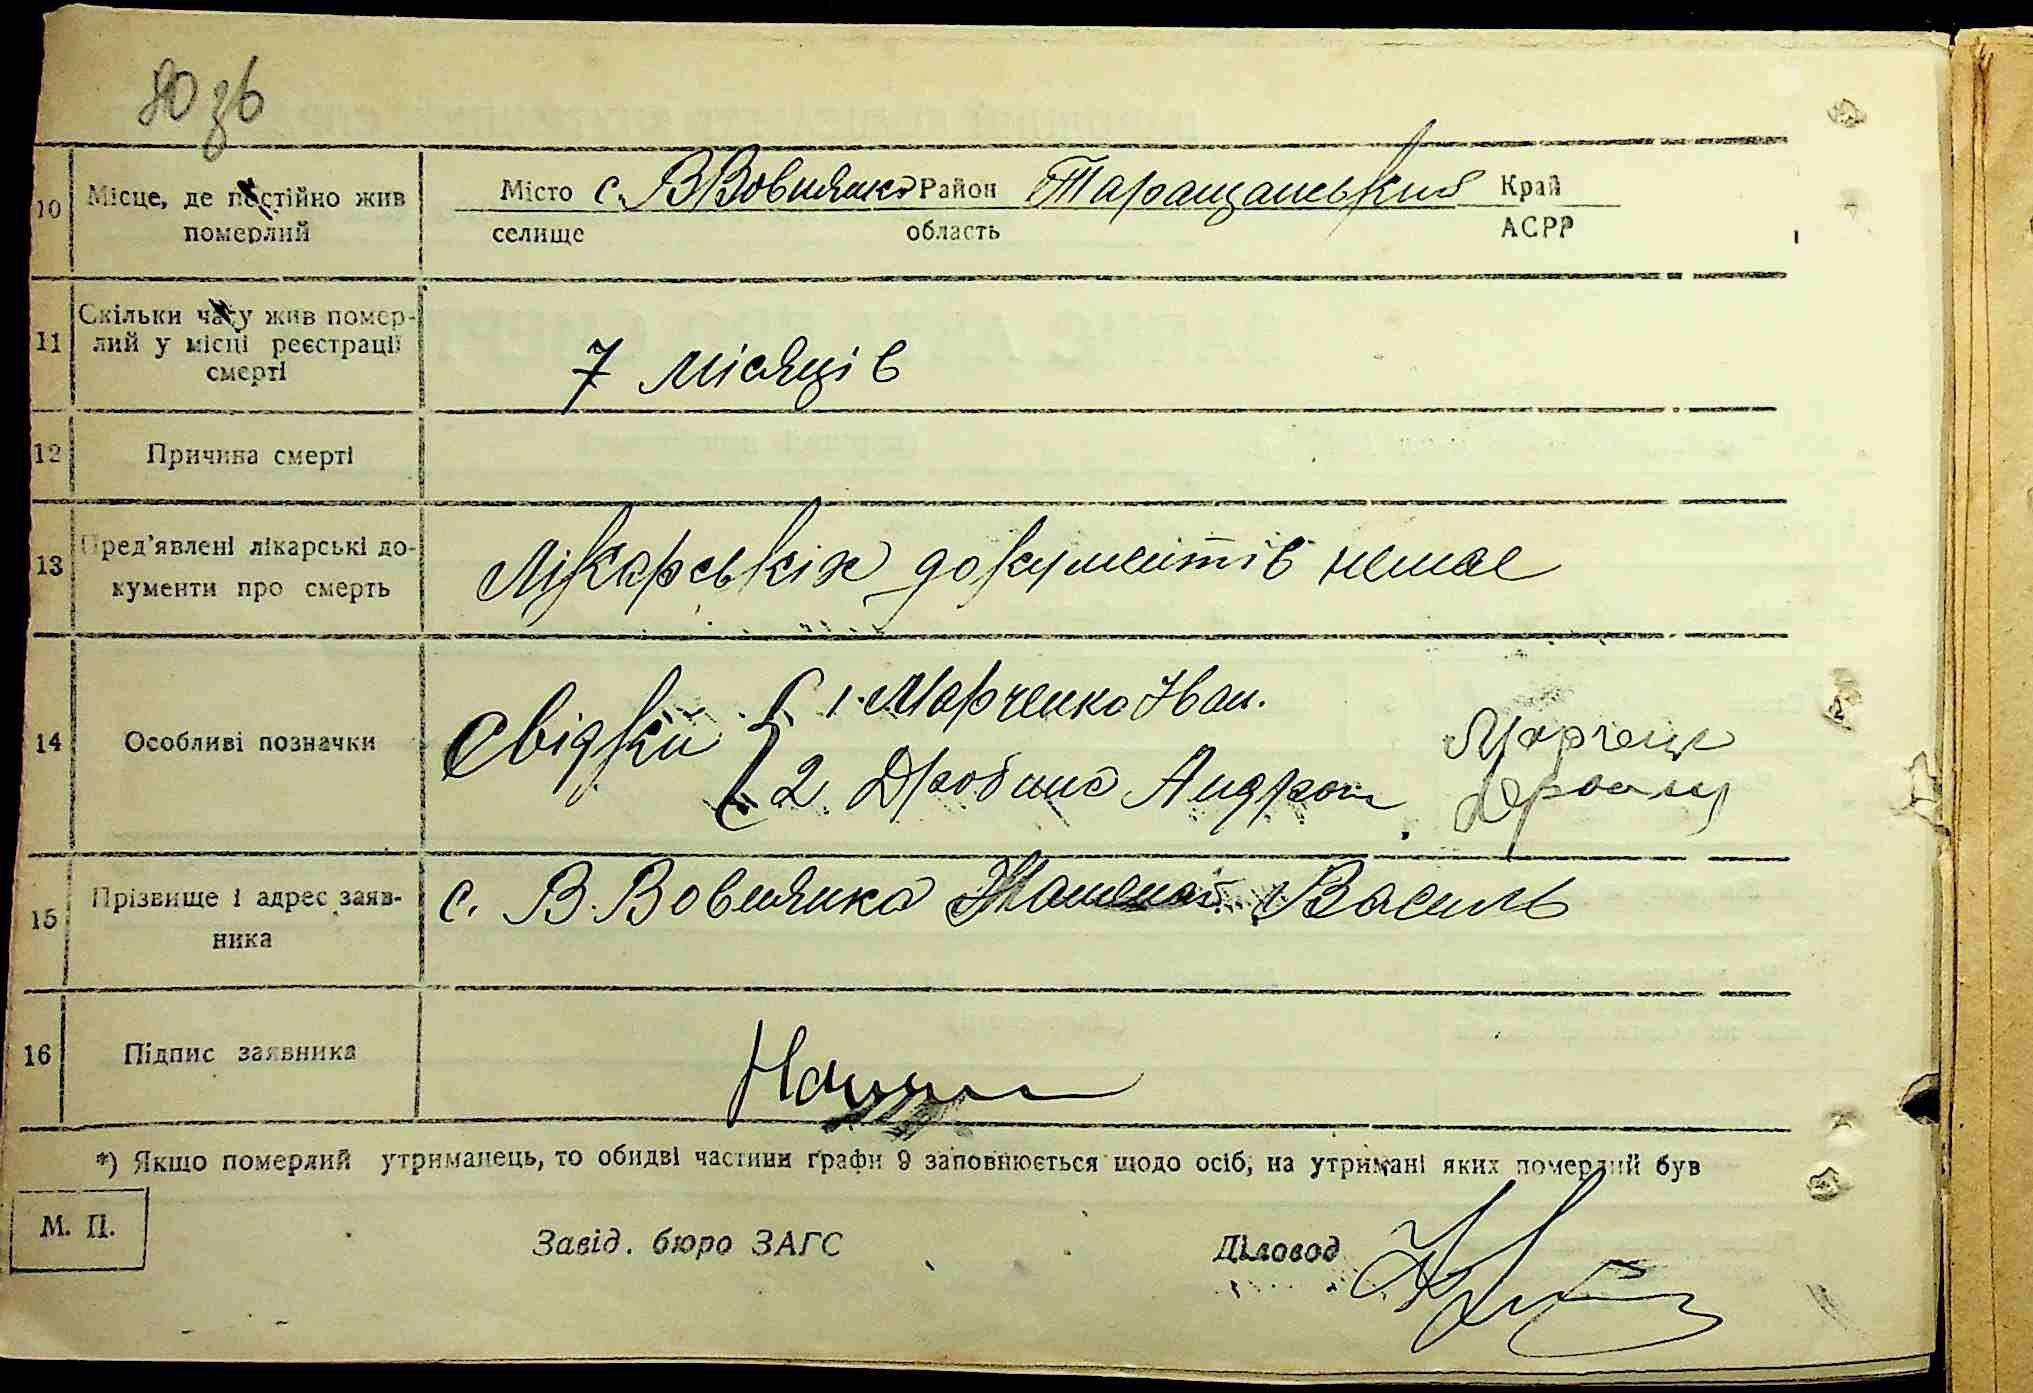 80 зв
10 Місце, де постійно жив Місто с. В Вовнянка Район Таращанський Край
померлий селище область АСРР
11 Скільки часу жив помер-
лий у місці реєстрації
смерті
7 місяців
12 Причина смерті
13 Пред'явлені лікарські до-
кументи про смерть
Лікарськіх документів немає
14 Особливі позначки
Свідки 1. Марченко Іван.
2 Андрон
15 Прізвище і адрес заяв-
ника
с. В. Вовнянка Василь
16 Підпис заявника
*) Якщо померлий утриманець, то обидві частини графи 9 заповнюється щодо осіб, на утримані яких померлий був
М. П. Завід. бюро ЗАГС Діловод